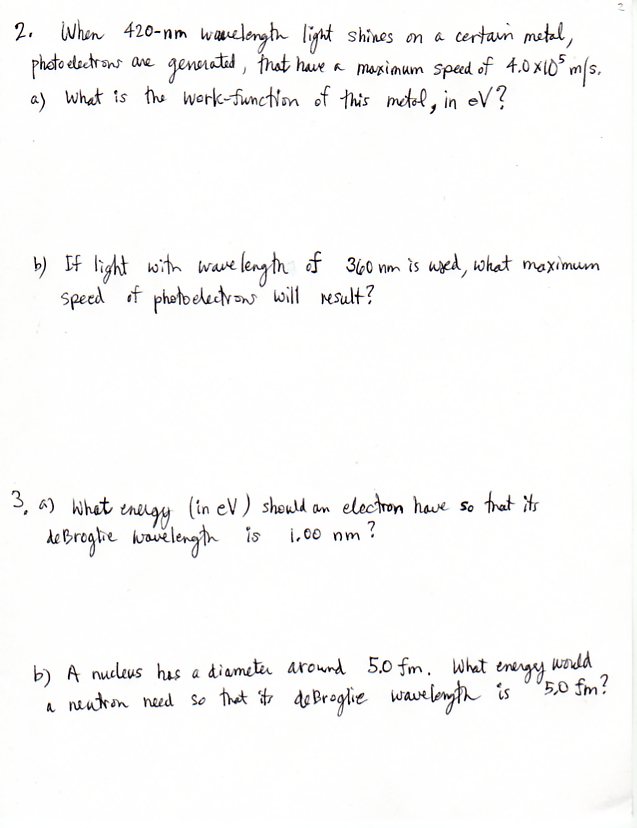 2
2. When 420-nm wavelength light shines on a certain metal,
photoelectrons are generated, that have a maximum speed of 4.0 x 10⁵ m/s.
a) What is the work-function of this metal, in eV?
b) If light with wavelength of 360 nm is used, what maximum
speed of photoelectrons will result?
3. a) What energy (in eV) should an electron have so that its
deBroglie wavelength is 1.00 nm?
b) A nucleus has a diameter around 5.0 fm. What energy would
a neutron need so that its deBroglie wavelength is 5.0 fm?